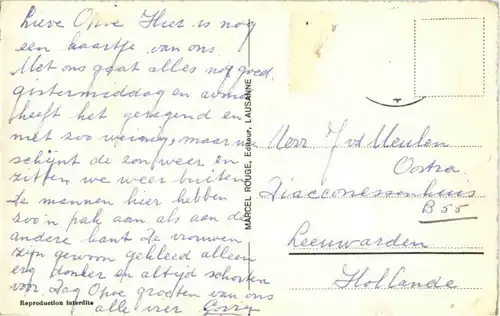 Lieve Opoe Hier is nog
een kaartje van ons.
Met ons gaat alles nog goed.
gistermiddag en avond
heeft het geregend en
niet zoo weinig, maar nu
schijnt de zon weer en
zitten we weer buiten
De mannen hier hebben
zoo'n pak aan als aan de
andere kant De vrouwen
zijn gewoon gekleed alleen
erg donker en altijd schorten
voor Dag Opoe groeten van ons
alle vier Corry
Reproduction interdite
MARCEL ROUGE, Editeur, LAUSANNE
Heer J. v.d Meulen
Oostra
Diacconessenhuis
B 55
Leeuwarden
Hollande